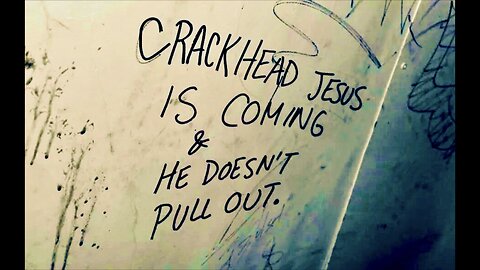 CRACKHEAD JESUS
IS COMING
&
HE DOESN'T
PULL OUT.